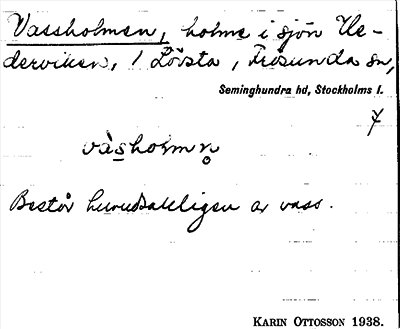 Vassholmen, holme i sjön He-
derviken, 1 Lövsta, Frösunda sn,
Seminghundra hd, Stockholms l.
7
vàsholmn̥
Består huvudsakligen av vass.
KARIN OTTOSSON 1938.